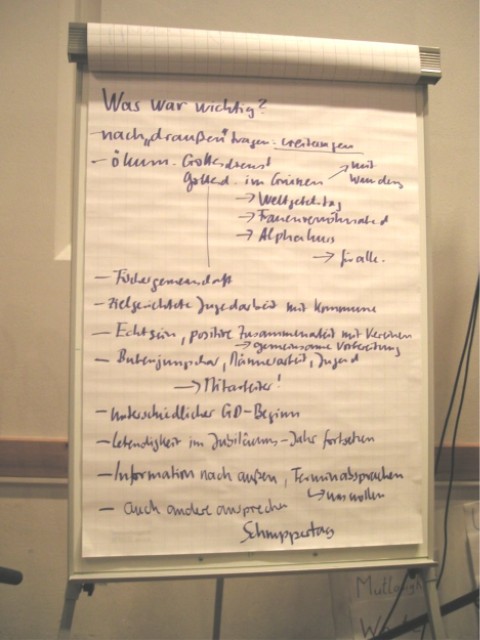 Was war wichtig?
- nach "draußen" tragen. weitersagen
- ökum. Gottesdienst
Gottesd. im Grünen → mit
→ Weltgebetstag
→ Alphakurs
→ für alle.
- zielgerichtete Jugendarbeit mit Kommune
- Echtsein, positive Zusammenarbeit mit Vereinen
→ gemeinsame Vorbereitung
- Bubenjungschar, Männerarbeit, Jugend
→ Mitarbeiter!
- unterschiedlicher GD-Beginn
- Lebendigkeit im Jubiläums-Jahr fortsetzen
- Information nach außen, Terminabsprachen
- auch andere ansprechen
Schnuppertag